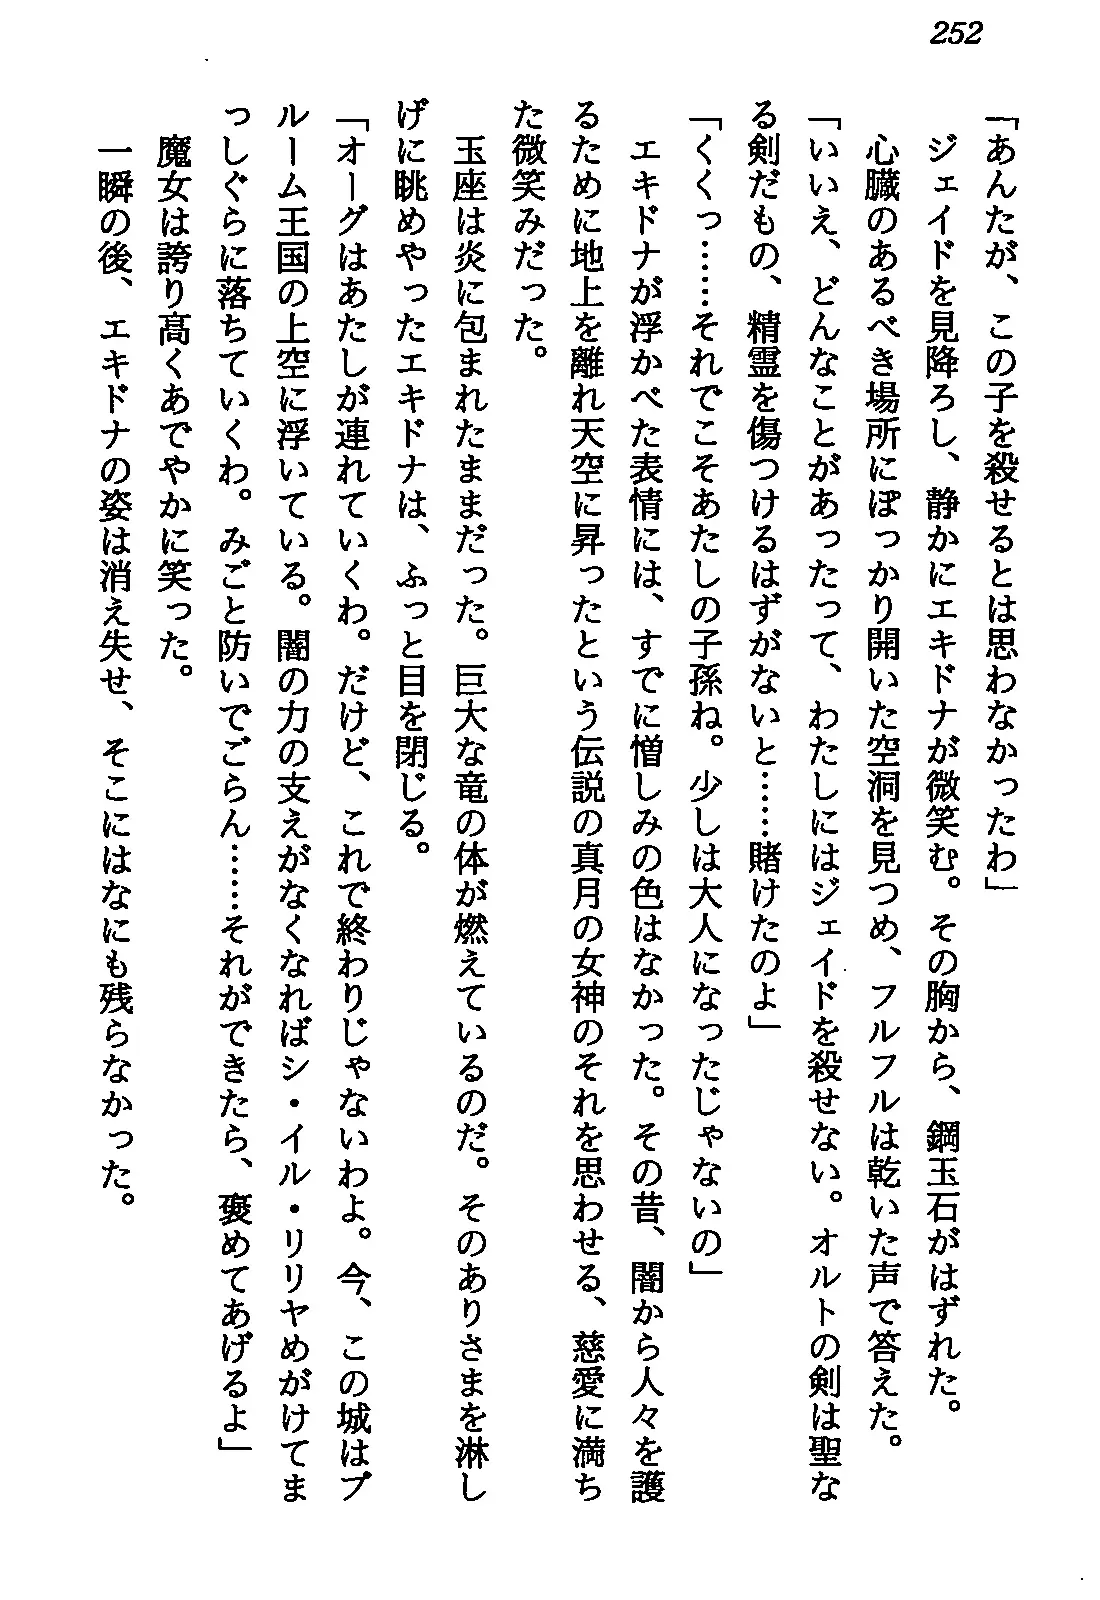 252
「あんたが、この子を殺せるとは思わなかったわ」
ジェイドを見降ろし、静かにエキドナが微笑む。その胸から、鋼玉石がはずれた。
心臓のあるべき場所にぽっかり開いた空洞を見つめ、フルフルは乾いた声で答えた。
「いいえ、どんなことがあったって、わたしにはジェイドを殺せない。オルトの剣は聖な
る剣だもの、精霊を傷つけるはずがないと……賭けたのよ」
「くくっ……それでこそあたしの子孫ね。少しは大人になったじゃないの」
エキドナが浮かべた表情には、すでに憎しみの色はなかった。その昔、闇から人々を護
るために地上を離れ天空に昇ったという伝説の真月の女神のそれを思わせる、慈愛に満ち
た微笑みだった。
玉座は炎に包まれたままだった。巨大な竜の体が燃えているのだ。そのありさまを淋し
げに眺めやったエキドナは、ふっと目を閉じる。
「オーグはあたしが連れていくわ。だけど、これで終わりじゃないわよ。今、この城はプ
ルーム王国の上空に浮いている。闇の力の支えがなくなればシ・イル・リリヤめがけてま
っしぐらに落ちていくわ。みごと防いでごらん……それができたら、褒めてあげるよ」
魔女は誇り高くあでやかに笑った。
一瞬の後、エキドナの姿は消え失せ、そこにはなにも残らなかった。